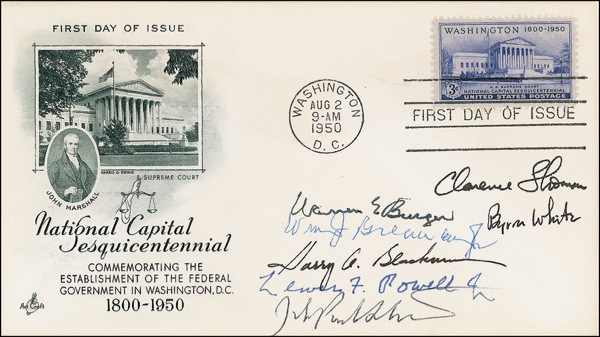 FIRST DAY OF ISSUE
HARRIS & EWING
SUPREME COURT
JOHN MARSHALL
National Capital
Sesquicentennial
COMMEMORATING THE
ESTABLISHMENT OF THE FEDERAL
GOVERNMENT IN WASHINGTON, D.C.
1800-1950
Art Craft
WASHINGTON
AUG 2
9-AM
1950
D. C.
WASHINGTON 1800-1950
U.S. SUPREME COURT
NATIONAL CAPITAL SESQUICENTENNIAL
3¢ UNITED STATES POSTAGE
FIRST DAY OF ISSUE
Clarence Thomas
Warren E Burger
Byron White
Wm J Brennan Jr
Harry A. Blackmun
Lewis F. Powell Jr
John Paul Stevens